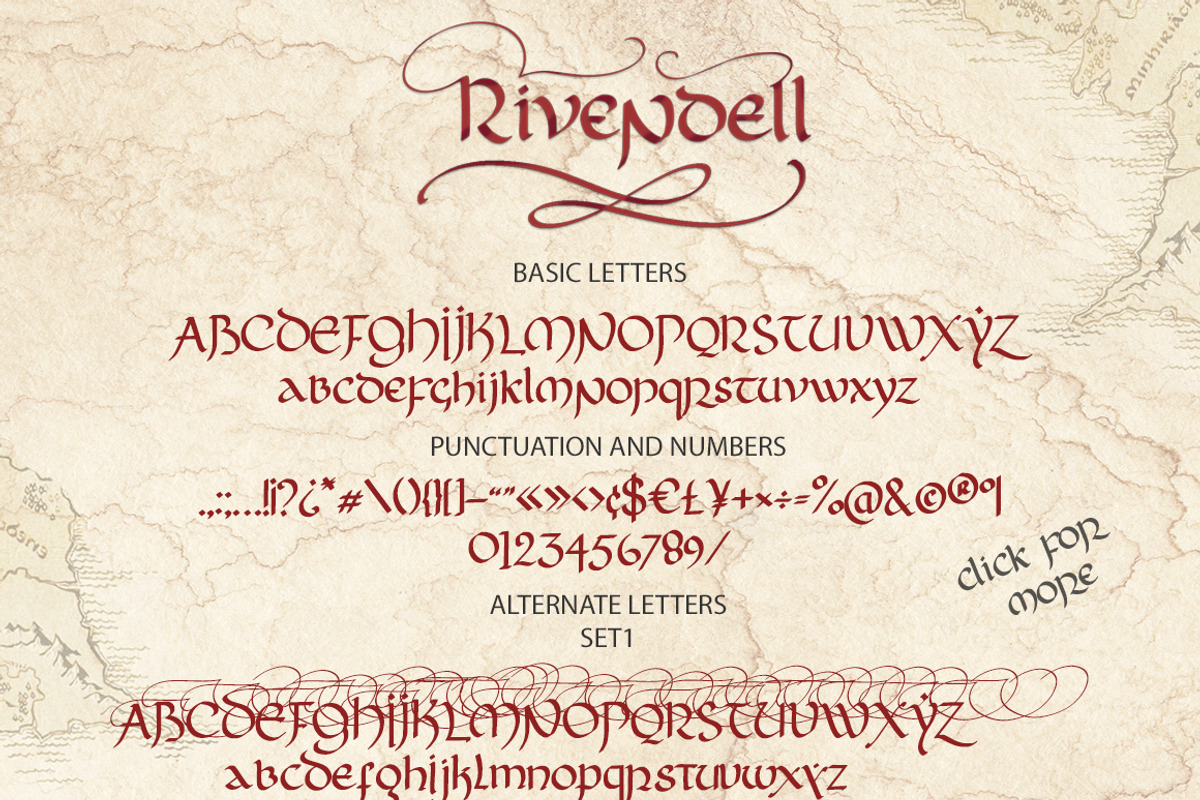 Minhiriath
Rivendell
BASIC LETTERS
ABCDEFGHIJKLMNOPQRSTUVWXYZ
abcdefghijklmnopqrstuvwxyz
PUNCTUATION AND NUMBERS
.,:;…!¡?¿*#\(){}[]–“”«»‹›¢$€£¥+×÷=%@&©®¶
0123456789/
click for
more
ALTERNATE LETTERS
SET1
ABCDEFGHIJKLMNOPQRSTUVWXYZ
abcdefghijklmnopqrstuvwxyz